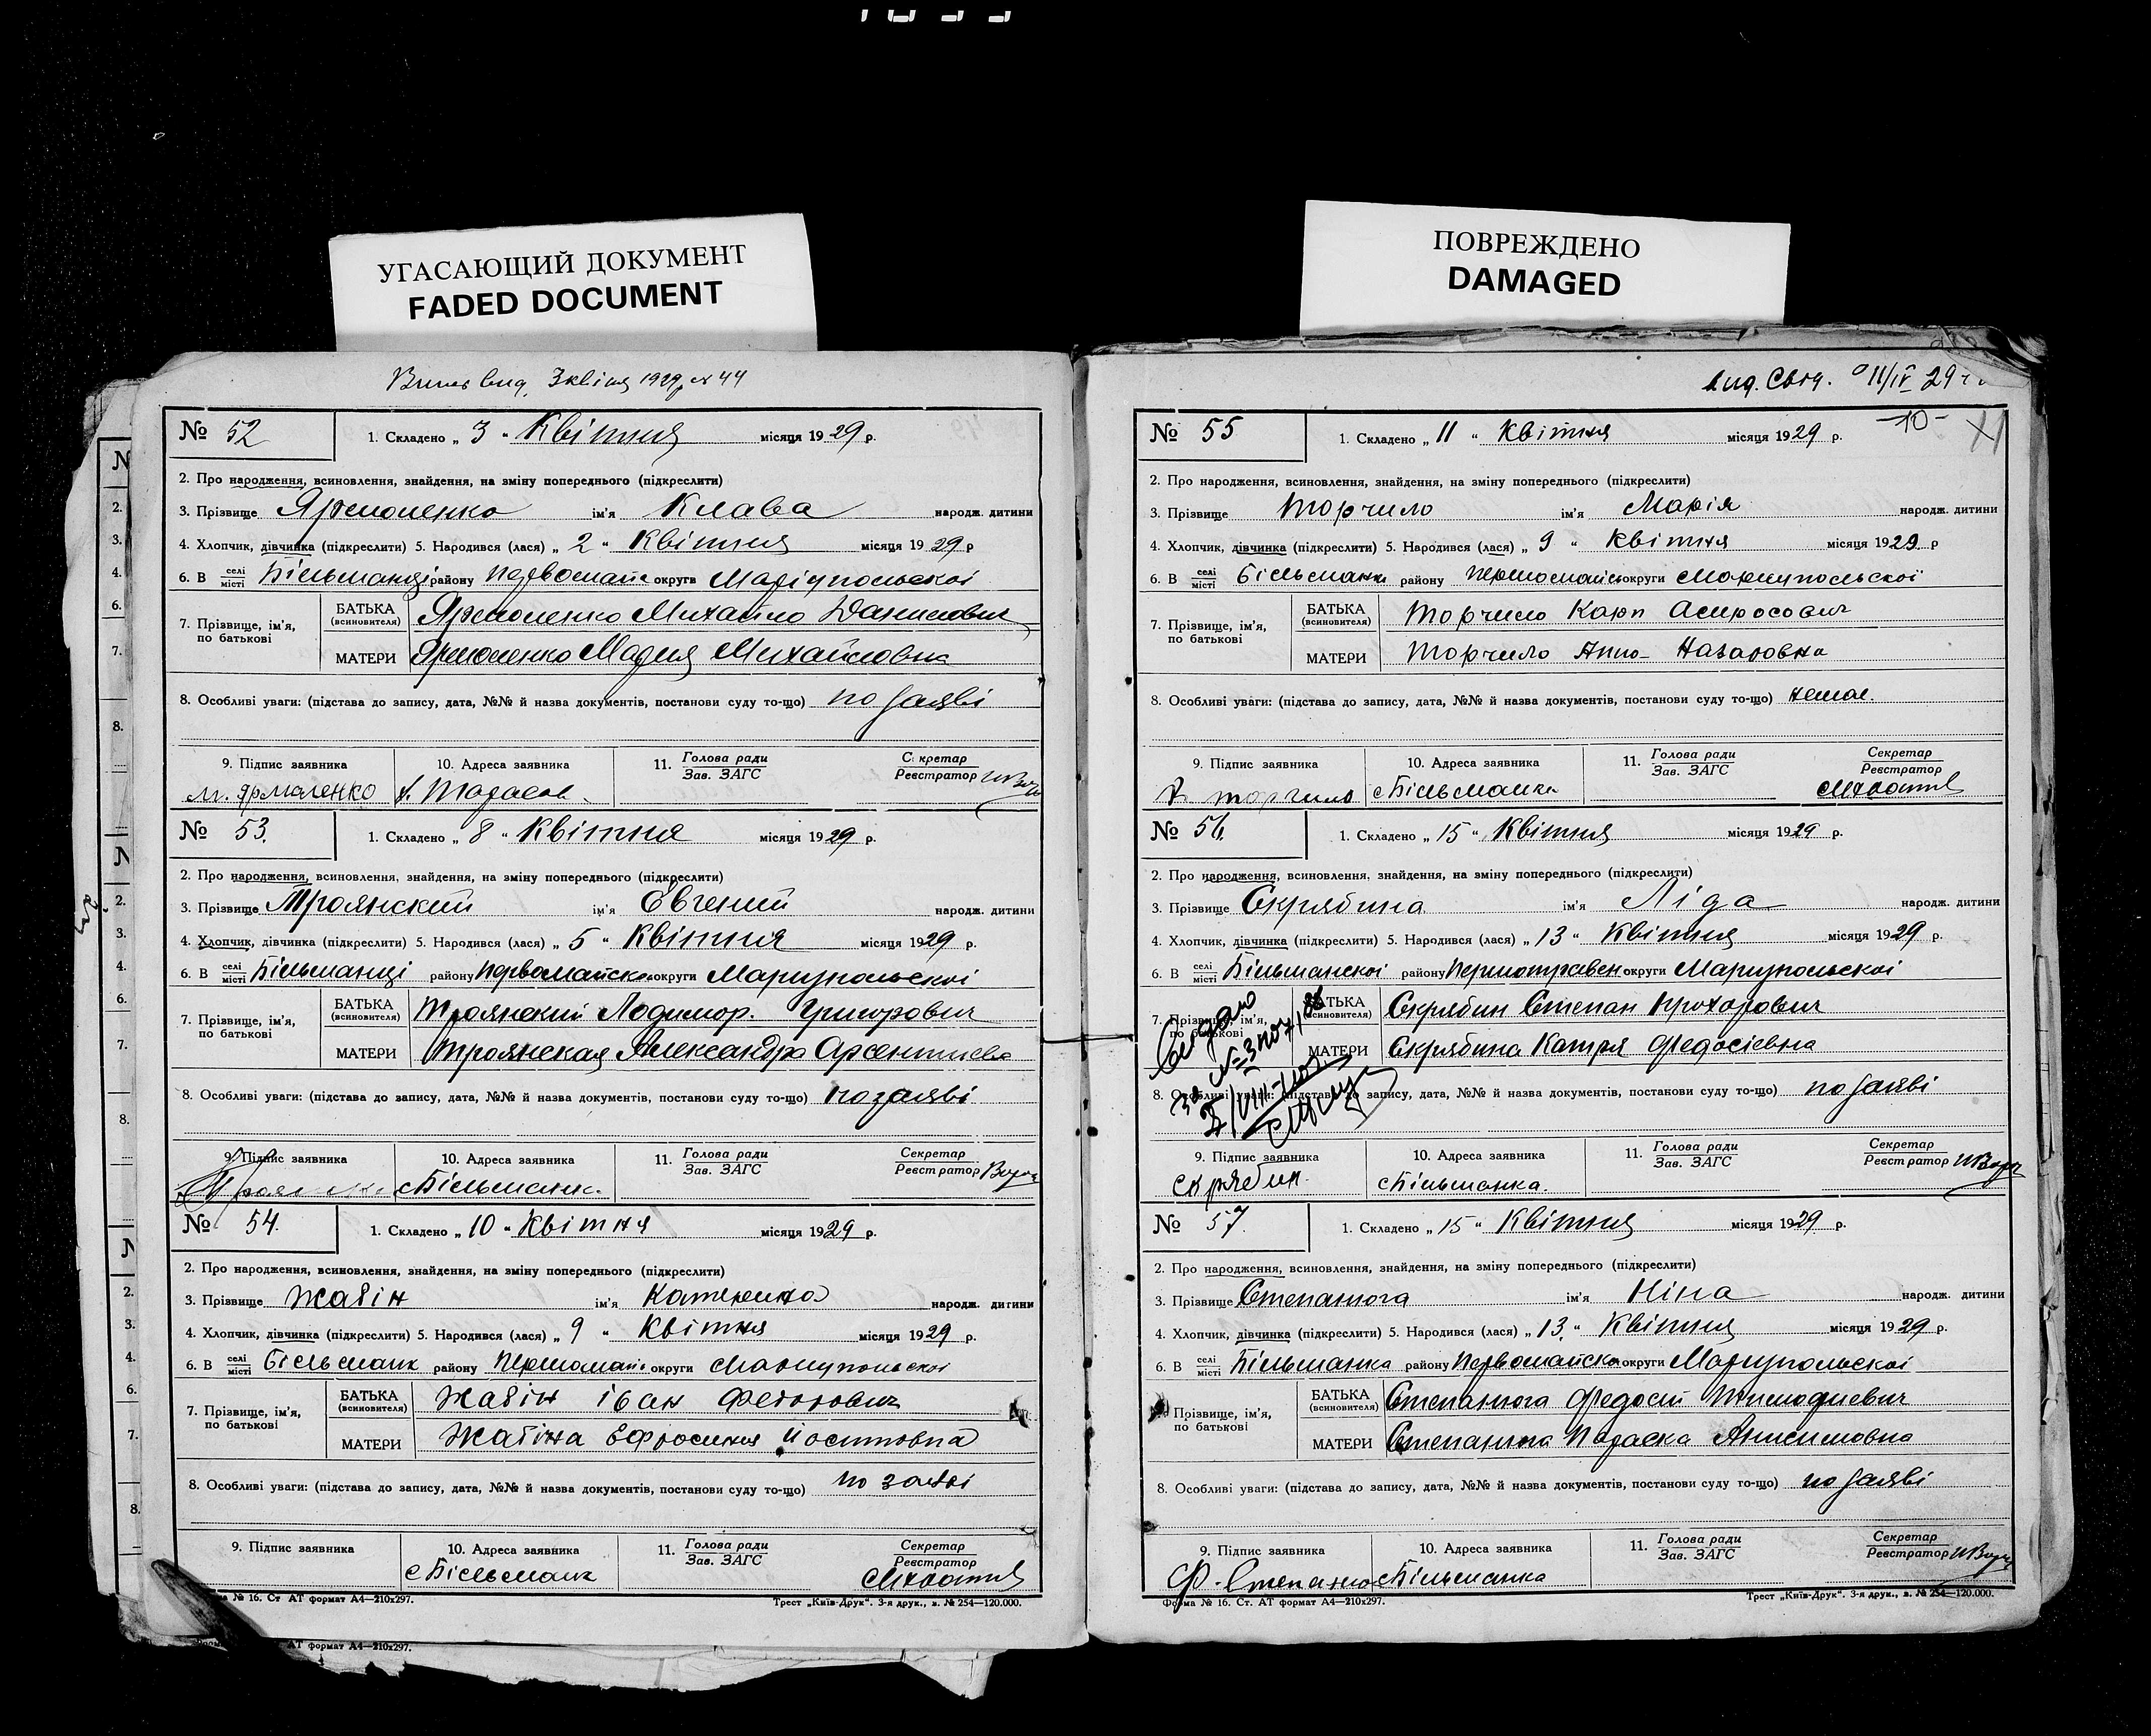 УГАСАЮЩИЙ ДОКУМЕНТ
FADED DOCUMENT
3 квітня 1929 № 44
№ 52 1. Складено „ 3 “ Квітня місяця 1929 р.
2. Про народження, всиновлення, знайдення, на зміну попереднього (підкреслити)
3. Прізвище Ярмоленко ім'я Клава народж. дитини
4. Хлопчик, дівчинка (підкреслити) 5. Народився (лася) „ 2 “ Квітня місяця 1929 р
6. В селі місті Більманці району первомайс округи Маріупольськоі
7. Прізвище, ім'я, по батькові БАТЬКА (всиновителя) Ярмоленко Михайло Данилович
МАТЕРИ Ярмоленко Мария Михайловна
8. Особливі уваги: (підстава до запису, дата, №№ й назва документів, постанови суду то-що) по заяві
9. Підпис заявника 10. Адреса заявника 11. Голова ради Зав. ЗАГС Секретар Реєстратор
м. Ярмоленко
№ 53. 1. Складено „ 8 “ Квітня місяця 1929 р.
2. Про народження, всиновлення, знайдення, на зміну попереднього (підкреслити)
3. Прізвище Троянский ім'я Евгений народж. дитини
4. Хлопчик, дівчинка (підкреслити) 5. Народився (лася) „ 5 “ Квітня місяця 1929 р.
6. В селі місті Більманці району Первомайско округи Мариупольскоі
7. Прізвище, ім'я, по батькові БАТЬКА (всиновителя) Троянский Григорович
МАТЕРИ Троянская Александра
8. Особливі уваги: (підстава до запису, дата, №№ й назва документів, постанови суду то-що) по заяві
9. Підпис заявника 10. Адреса заявника 11. Голова ради Зав. ЗАГС Секретар Реєстратор
№ 54. 1. Складено „ 10 “ Квітня місяця 1929 р.
2. Про народження, всиновлення, знайдення, на зміну попереднього (підкреслити)
3. Прізвище Жабін ім'я Катерина народж. дитини
4. Хлопчик, дівчинка (підкреслити) 5. Народився (лася) „ 9 “ Квітня місяця 1929 р.
6. В селі місті Більманк району округи Мариупольскоі
7. Прізвище, ім'я, по батькові БАТЬКА (всиновителя) Жабін Іван Федорович
МАТЕРИ Жабіна Ефросиния
8. Особливі уваги: (підстава до запису, дата, №№ й назва документів, постанови суду то-що) по заяві
9. Підпис заявника 10. Адреса заявника 11. Голова ради Зав. ЗАГС Секретар Реєстратор
с Більманк
№ 16. Ст АТ формат А4—210х297. Трест „Київ-Друк“. 3-я друк., в. № 254—120.000.
АТ формат А4—210х297.
ПОВРЕЖДЕНО
DAMAGED
11/IV 29
№ 55 1. Складено „ 11 “ Квітня місяця 1929 р. -10-
2. Про народження, всиновлення, знайдення, на зміну попереднього (підкреслити)
3. Прізвище Торчило ім'я Марія народж. дитини
4. Хлопчик, дівчинка (підкреслити) 5. Народився (лася) „ 9 “ Квітня місяця 1929 р
6. В селі місті Більманк району округи Мариупольскої
7. Прізвище, ім'я, по батькові БАТЬКА (всиновителя) Торчило Карп
МАТЕРИ Торчило Анна Назаровна
8. Особливі уваги: (підстава до запису, дата, №№ й назва документів, постанови суду то-що) немає.
9. Підпис заявника 10. Адреса заявника 11. Голова ради Зав. ЗАГС Секретар Реєстратор
Торчило с Більманка
№ 56. 1. Складено „ 15 “ Квітня місяця 1929 р.
2. Про народження, всиновлення, знайдення, на зміну попереднього (підкреслити)
3. Прізвище Скрябина ім'я Ліда народж. дитини
4. Хлопчик, дівчинка (підкреслити) 5. Народився (лася) „ 13 “ Квітня місяця 1929 р.
6. В селі місті Більманскоі району округи Мариупольскоі
7. Прізвище, ім'я, по батькові БАТЬКА (всиновителя) Скрябин Степан Прохорович
МАТЕРИ Скрябина Катря Федосіевна
8. Особливі уваги: (підстава до запису, дата, №№ й назва документів, постанови суду то-що) по заяві
9. Підпис заявника 10. Адреса заявника 11. Голова ради Зав. ЗАГС Секретар Реєстратор
Скрябин. с Більманка.
№ 57. 1. Складено „ 15 “ Квітня місяця 1929 р.
2. Про народження, всиновлення, знайдення, на зміну попереднього (підкреслити)
3. Прізвище Степанюга ім'я Ніна народж. дитини
4. Хлопчик, дівчинка (підкреслити) 5. Народився (лася) „ 13 “ Квітня місяця 1929 р.
6. В селі місті Більманка району Первомайско округи Мариупольскоі
7. Прізвище, ім'я, по батькові БАТЬКА (всиновителя) Степанюга Федосий
МАТЕРИ Степанюга Параска Анисимовна
8. Особливі уваги: (підстава до запису, дата, №№ й назва документів, постанови суду то-що) по заяві
9. Підпис заявника 10. Адреса заявника 11. Голова ради Зав. ЗАГС Секретар Реєстратор
Ф. Степанюга с Більманка
Форма № 16. Ст. АТ формат А4—210х297. Трест „Київ-Друк“. 3-я друк., в. № 254—120.000.